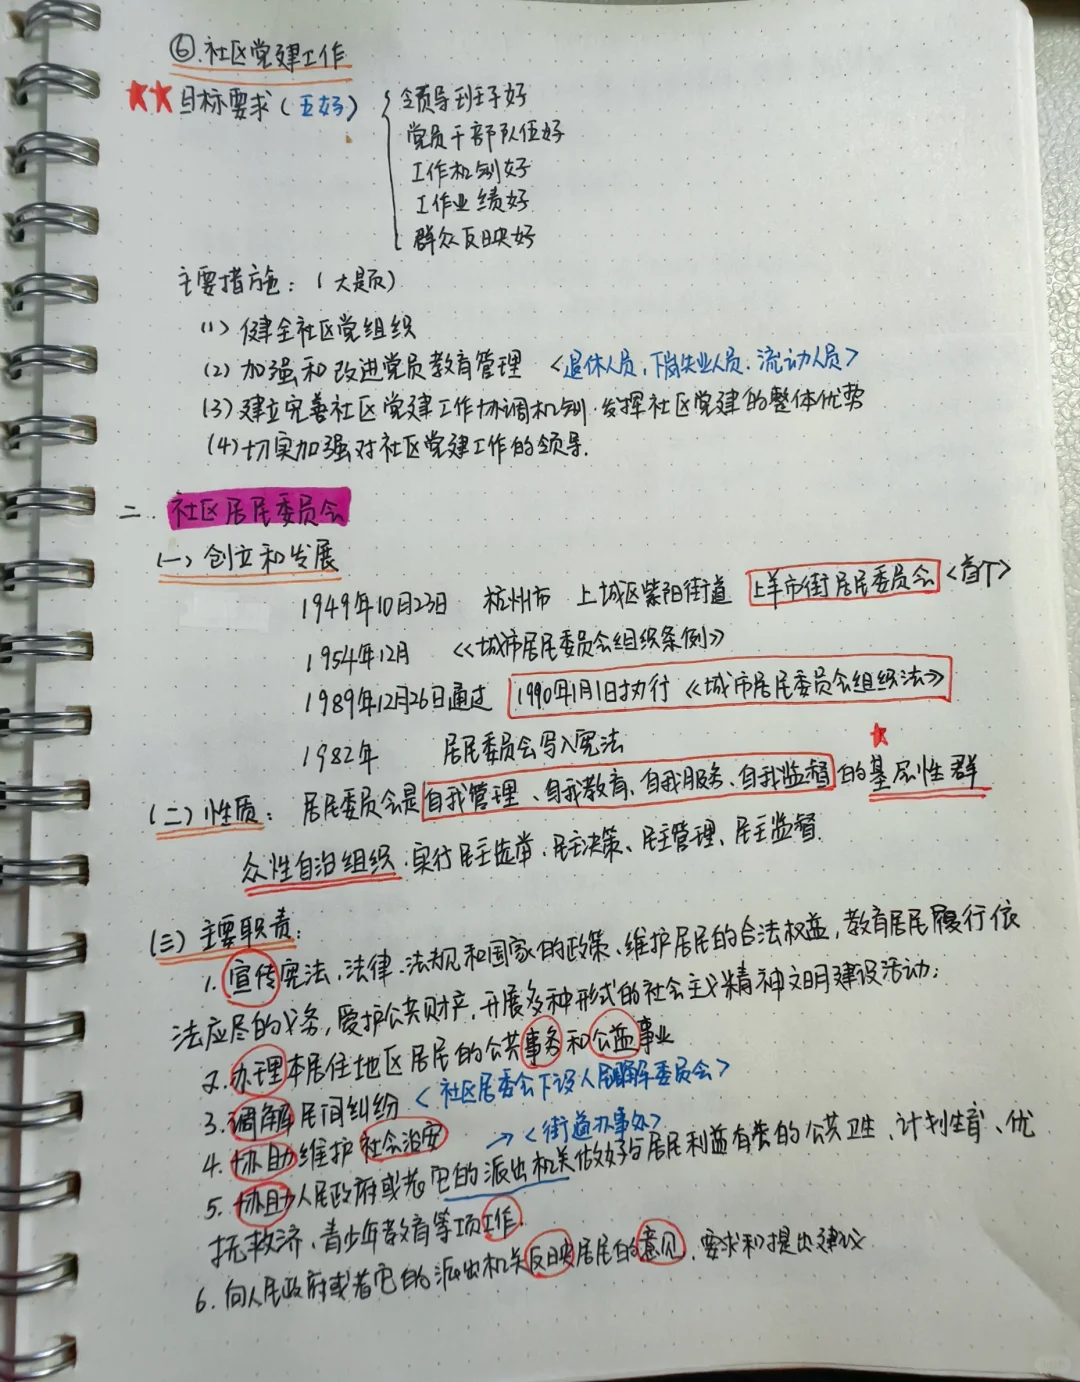 ⑥.社区党建工作
★★目标要求(五好) { 领导班子好
党员干部队伍好
工作机制好
工作业绩好
群众反映好
主要措施:(大题)
(1)健全社区党组织
(2)加强和改进党员教育管理 <退休人员、下岗失业人员、流动人员>
(3)建立完善社区党建工作协调机制.发挥社区党建的整体优势
(4)切实加强对社区党建工作的领导.
二.社区居民委员会
(一)创立和发展
1949年10月23日 杭州市 上城区紫阳街道 上羊市街居民委员会<首个>
1954年12月 《城市居民委员会组织条例》
1989年12月26日通过 1990年1月1日执行《城市居民委员会组织法》
1982年 居民委员会写入宪法
(二)性质: 居民委员会是自我管理、自我教育、自我服务、自我监督的基层性群
众性自治组织.实行民主选举、民主决策、民主管理、民主监督.
(三)主要职责:
1.宣传宪法、法律、法规和国家的政策、维护居民的合法权益,教育居民履行依
法应尽的义务,爱护公共财产,开展多种形式的社会主义精神文明建设活动;
2.办理本居住地区居民的公共事务和公益事业
3.调解民间纠纷 <社区居委会下设人民调解委员会>
4.协助维护社会治安 → <街道办事处>
5.协助人民政府或者它的派出机关做好与居民利益有关的公共卫生、计划生育、优
抚救济、青少年教育等项工作.
6.向人民政府或者它的派出机关反映居民的意见、要求和提出建议